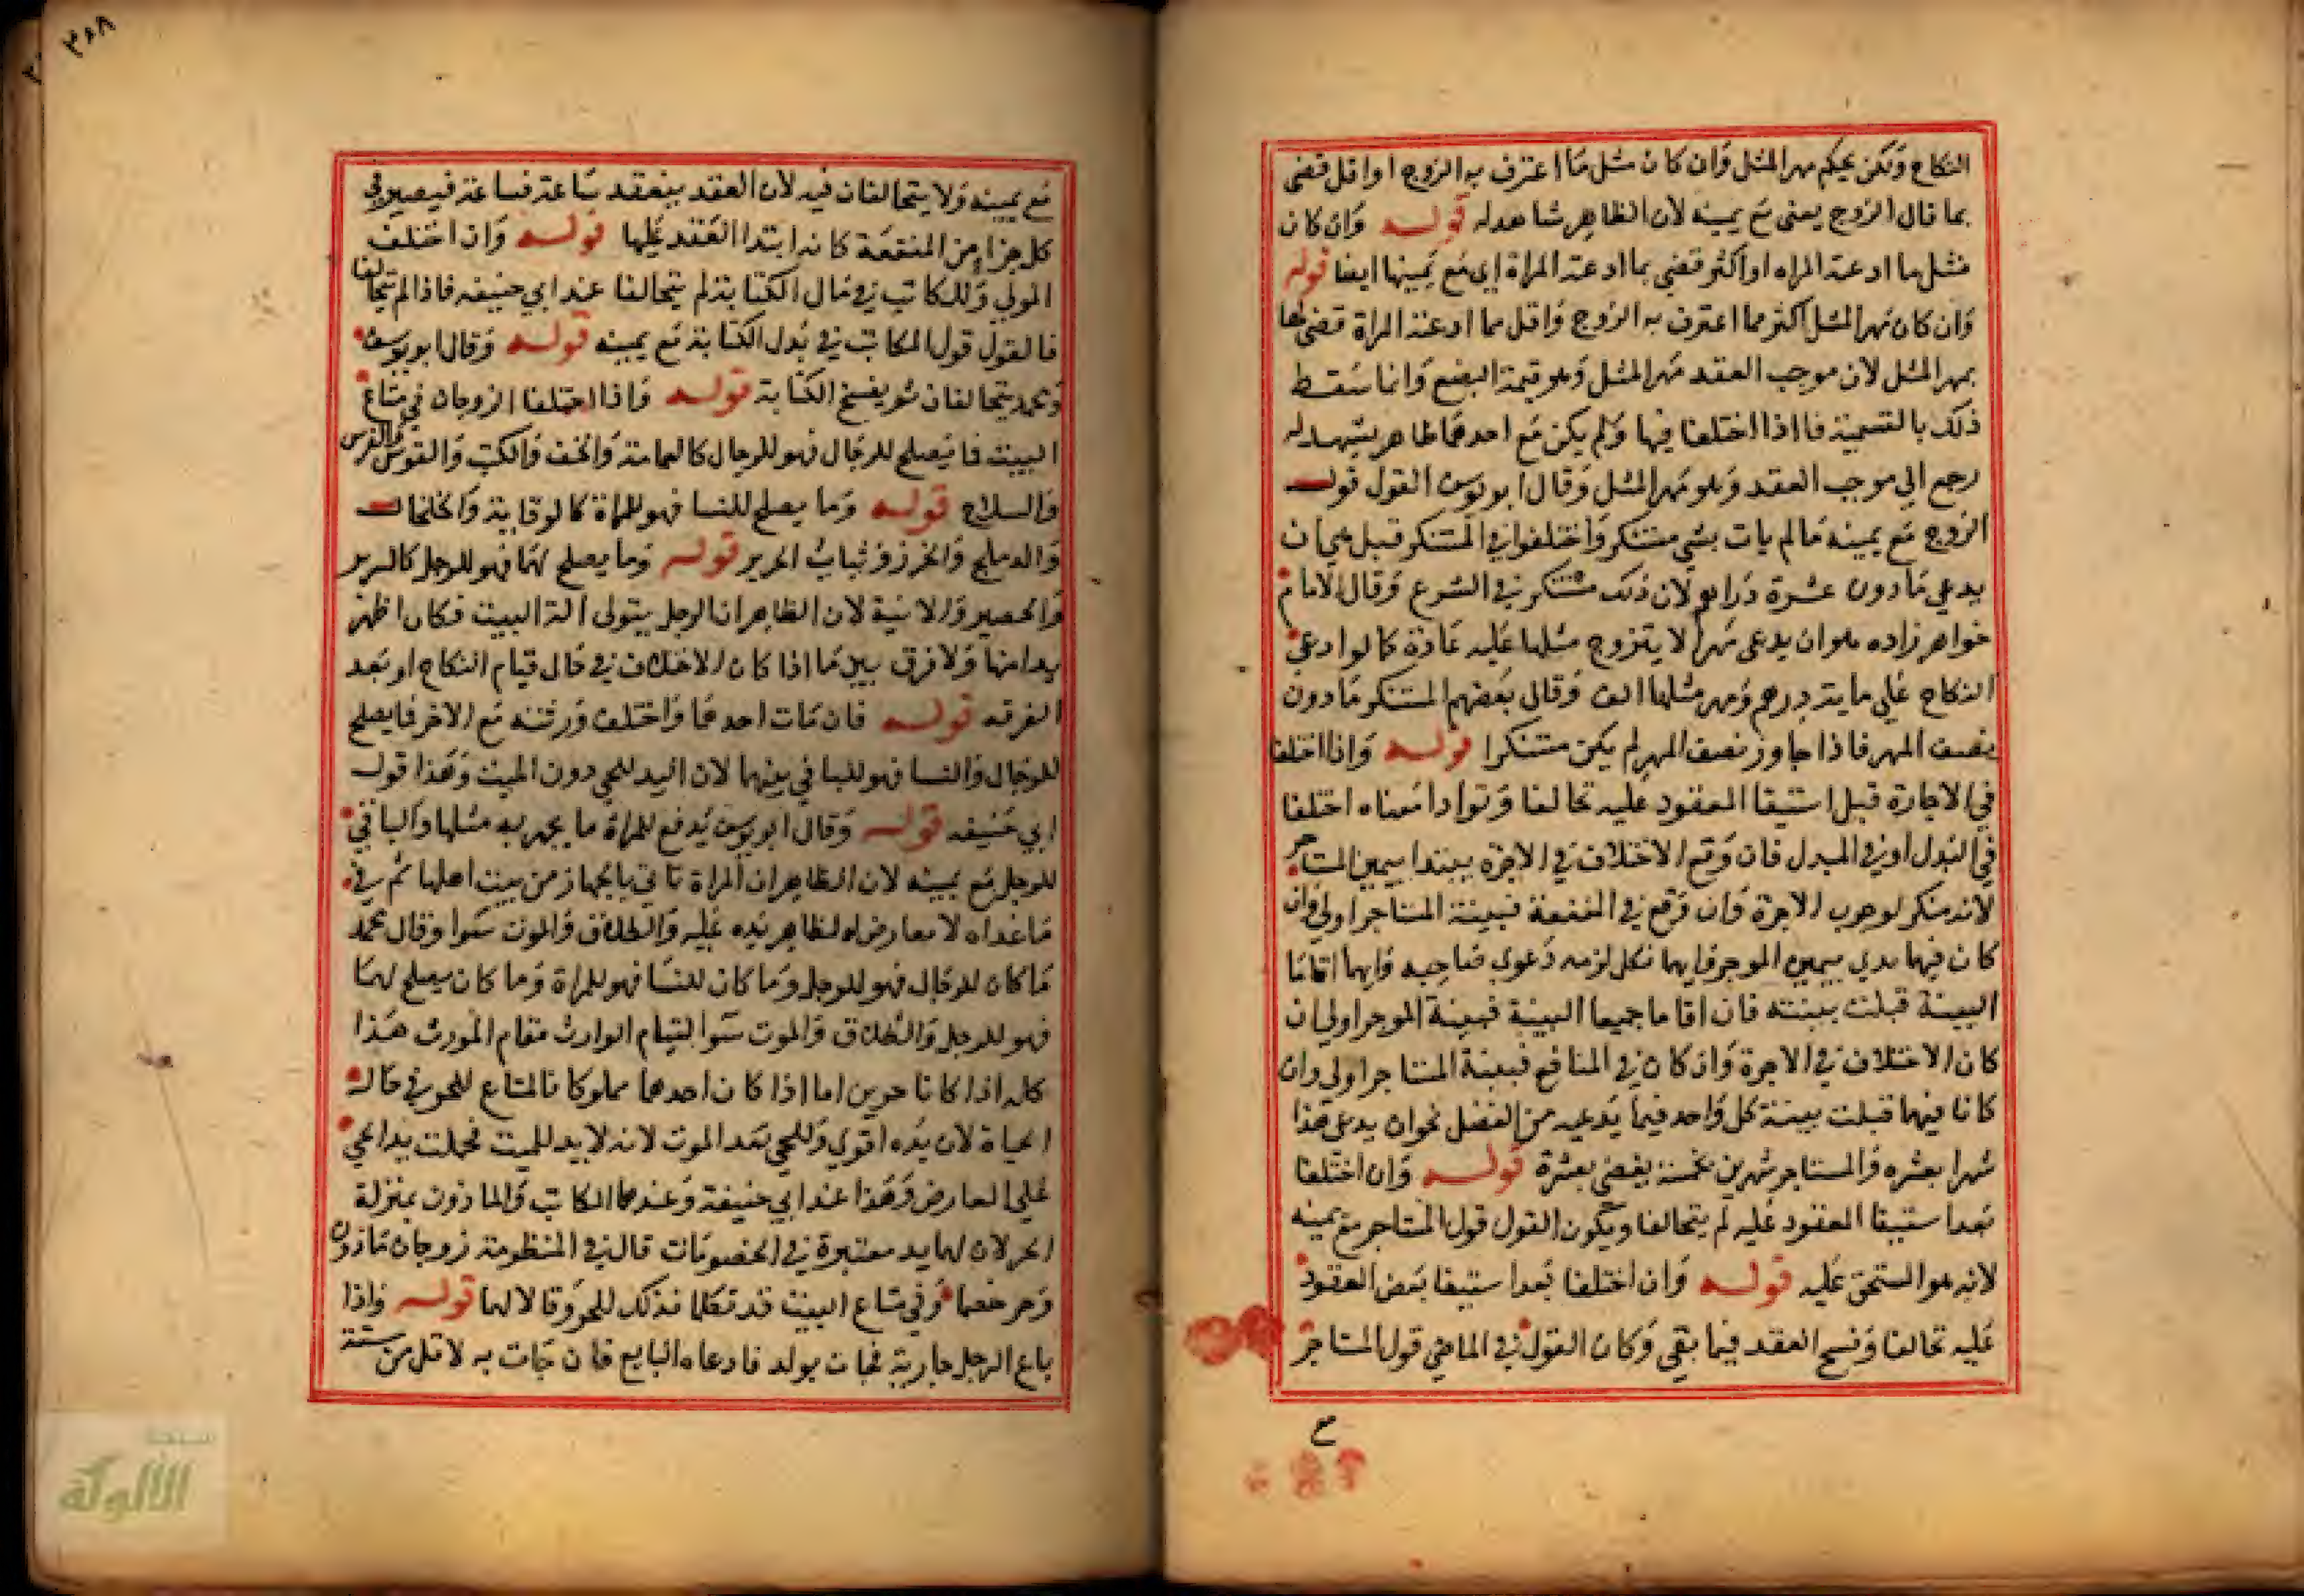 النكاح ولكن يحكم مهر المثل وان كان مثل ما اعترف به الزوج او اقل قضى
بما قال الزوج يعنى مع يمينه لان الظاهر شاهد له قوله وان كان
مثل ما ادعته المراه او اكثر قضى بما ادعته المراة اي مع يمينها ايضا قوله
وان كان مهر المثل اكثر مما اعترف به الزوج واقل مما ادعته المراة قضى لها
بمهر المثل لان موجب العقد مهر المثل وهو قيمة البضع وانما سقط
ذلك بالتسمية فااذا اختلفا فيها ولم يكن مع احدهما ظاهر يشهد له
رجع الي موجب العقد وهو مهر المثل وقال ابو يوسف القول قول
الزوج مع يمينه مالم يات بشي مستنكر واختلفوا في المستنكر قيل هي ان
يدعي مادون عشرة دراهم لان ذلك مستنكر في الشرع وقال الامام
خواهر زاده هو ان يدعى مهرا لا يتزوج مثلها عليه عادة كما لو ادعى
النكاح علي ماية درهم ومهر مثلها الف وقال بعضهم المستنكر مادون
نصف المهر فاذا جاوز نصف المهر لم يكن مستنكرا قوله واذا اختلفا
في الاجارة قبل استيفا المعقود عليه تحالفا وترادا معناه اختلفا
في البدل او في المبدل فان وقع الاختلاف في الاجرة يبتدا بيمين المستاجر
لانه منكر لوجوب الاجرة وان وقع في المنفعة فبينة المستاجر اولي وان
كان فيها بدي بيمين الموجر فايهما نكل لزمه دعوي صاحبه وايهما اقاما
البينة قبلت بينته فان اقاما جميعا البينة فبينة الموجر اولي ان
كان الاختلاف في الاجرة وان كان في المنافع فبينة المستاجر اولي وان
كانا فيهما قبلت بينة كل واحد فيما يدعيه من الفضل نحو ان يدعى هذا
شهرا بعشره والمستاجر شهرين بخمسة يقضى بعشرة قوله وان اختلفا
بعد استيفا المعقود عليه لم يتحالفا ويكون القول قول المستاجر مع يمينه
لانه هو المستحق عليه قوله وان اختلفا بعد استيفا بعض المعقود
عليه تحالفا وفسخ العقد فيما بقى وكان القول في الماضي قول المستاجر
مع يمينه ولا يتحالفان فيه لان العقد ينعقد ساعة فساعة فيصير في
كل جزاء من المنفعة كانه ابتدا العقد عليها قوله وان اختلف
المولي والمكاتب في مال الكتابة لم يتحالفا عند ابي حنيفه فاذا لم يتحالفا
فالقول قول المكاتب في بدل الكتابة مع يمينه قوله وقال ابو يوسف
ومحمد يتحالفان ثم يفسخ الكتابة قوله واذا اختلفا الزوجان في متاع
البيت فما يصلح للرجال فهو للرجال كالعمامة والخف والكتب والقوس والفرس
والسلاح قوله وما يصلح للنسا فهو للمراة كالوقاية والخلخال
والدملج والخرز وثياب الحرير قوله وما يصلح لهما فهو للرجل كالسرير
والحصير والانية لان الظاهر ان الرجل يتولى الة البيت فكان اظهر
يدا منها ولا فرق بين ما اذا كان الاختلاف في حال قيام النكاح او بعد
الفرقه قوله فان مات احدهما واختلف ورثته مع الاخر فما يصلح
للرجال والنسا فهو للباقي بينهما لان اليد للحي دون الميت وهذا قول
ابي حنيفه قوله وقال ابو يوسف يدفع للمراة ما يجهز به مثلها والباقي
للرجل مع يمينه لان الظاهر ان المراة تاتي بالجهاز من بيت اهلها ثم في
ماعداه لا معارض له لظاهر يده عليه والطلاق والموت سوا وقال محمد
ما كان للرجال فهو للرجل وما كان للنسا فهو للمراة وما كان يصلح لهما
فهو للرجل والطلاق والموت سوا لقيام الوارث مقام المورث هذا
كله اذا كانا حرين اما اذا كان احدهما مملوكا فالمتاع للحر في حالة
الحياة لان يده اقوي وللحي بعد الموت لانه لا يد للميت فخلت يد الحي
علي المعارض وهذا عند ابي حنيفة وعندهما المكاتب والماذون بمنزلة
الحر لان لهما يد معتبرة في الخصومات قال في المنظومة زوجان ماذون
وحر خصما وفي متاع البيت قد تكلما فذلك للحر وقالا لهما قوله واذا
باع الرجل جارية فجات بولد فادعاه البايع فان جات به لاقل من ستة